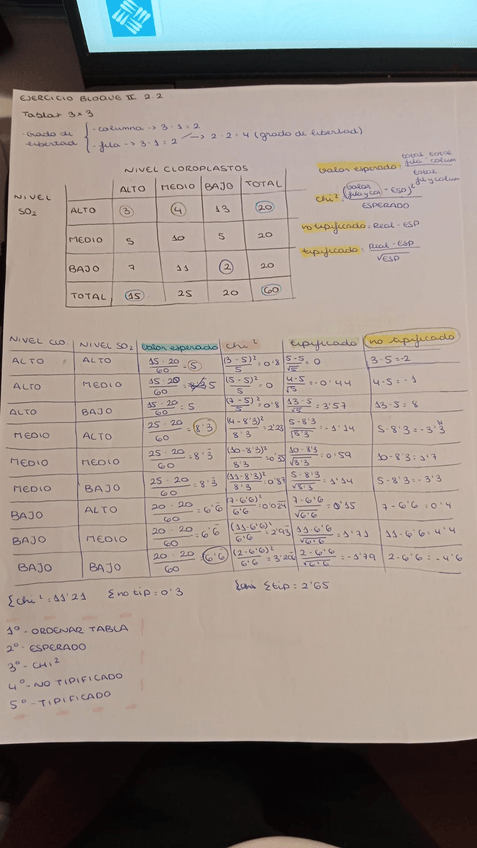 EJERCICIO BLOQUE II 2.2
Tablas 3x3
Grado de libertad
- columna -> 3-1=2
- fila -> 3-1=2 -> 2·2=4 (grado de libertad)
NIVEL CLOROPLASTOS
NIVEL SO2
ALTO MEDIO BAJO TOTAL
ALTO 3 4 13 20
MEDIO 5 10 5 20
BAJO 7 11 2 20
TOTAL 15 25 20 60
valor esperado:
chi²:
ESPERADO
no tipificado: Real - ESP
tipificado: Real - ESP / √ESP
NIVEL CLO. NIVEL SO2 valor esperado chi² tipificado no tipificado
ALTO ALTO 15·20/60=5 (3-5)²/5=0'8 5-5/√5=0 3-5=-2
ALTO MEDIO 15·20/60=5 (5-5)²/5=0 4-5/√5=-0'44 4-5=-1
ALTO BAJO 15·20/60=5 (7-5)²/5=0'8 13-5/√5=3'57 13-5=8
MEDIO ALTO 25·20/60=8'3 (4-8'3)²/8'3=2'23 5-8'3/√8'3=-1'14 5-8'3=-3'3
MEDIO MEDIO 25·20/60=8'3 (10-8'3)²/8'3 10-8'3/√8'3=0'59 10-8'3=1'7
MEDIO BAJO 25·20/60=8'3 (11-8'3)²/8'3 5-8'3/√8'3 1'14 5-8'3=-3'3
BAJO ALTO 20·20/60=6'6 (7-6'6)²/6'6=0'024 7-6'6/√6'6=0'15 7-6'6=0'4
BAJO MEDIO 20·20/60=6'6 (11-6'6)²/6'6=2'93 11-6'6/√6'6=1'71 11-6'6=4'4
BAJO BAJO 20·20/60=6'6 (2-6'6)²/6'6=3'20 2-6'6/√6'6=-1'79 2-6'6=-4'6
Σchi²=11'21 Σno tip=0'3 Σtip=2'65
1º- ORDENAR TABLA
2º- ESPERADO
3º- CHI²
4º- NO TIPIFICADO
5º- TIPIFICADO